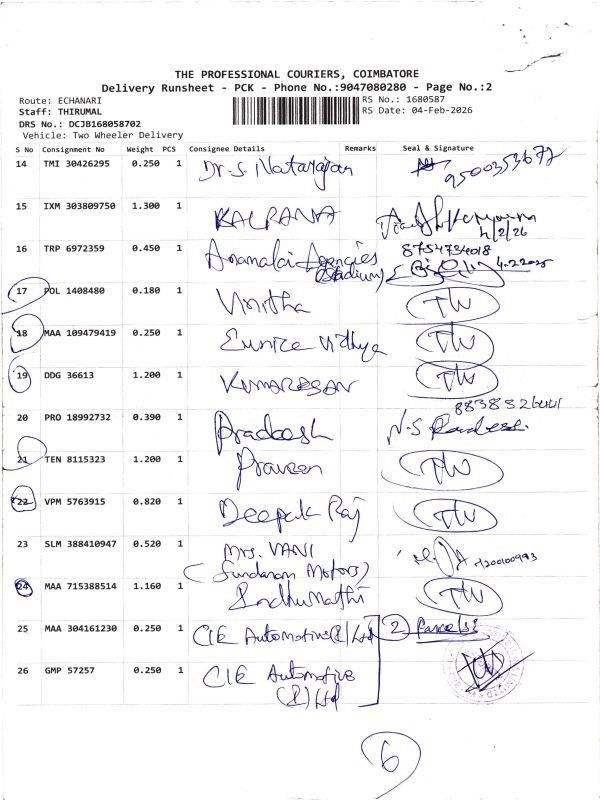 THE PROFESSIONAL COURIERS, COIMBATORE
Delivery Runsheet - PCK - Phone No.:9047080280 - Page No.:2
Route: ECHANARI RS No.: 1680587
Staff: THIRUMAL RS Date: 04-Feb-2026
DRS No.: DCJB168058702
Vehicle: Two Wheeler Delivery
S No Consignment No Weight PCS Consignee Details Remarks Seal & Signature
14 TMI 30426295 0.250 1 Dr. S. Natarajan 9500353672
15 IXM 303809750 1.300 1 KALPANA
4/2/26
16 TRP 6972359 0.450 1 Anamalai Agencies 8754734018
(Stadium) 4.2.2025
17 POL 1408480 0.180 1 Vinitha TW
18 MAA 109479419 0.250 1 Eunice Vidhya TW
19 DDG 36613 1.200 1 KUMARESAN TW
20 PRO 18992732 0.390 1 Pradeesh N.S
21 TEN 8115323 1.200 1 Praveen TW
22 VPM 5763915 0.820 1 Deepak Raj TW
23 SLM 388410947 0.520 1 Mrs. VANI
(Sundaram Motors)
24 MAA 715388514 1.160 1 Indhumathi TW
25 MAA 304161230 0.250 1 CIE Automotive (I) Ltd 2 Parcels
26 GMP 57257 0.250 1 CIE Automotive
(I) Ltd
6